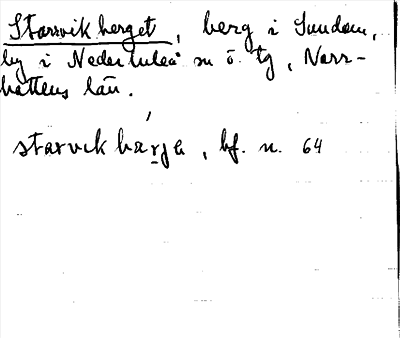 Starrvikberget, berg i Sundom,
by i Nederluleå sn ö. tg, Norr-
bottens län.
starvɩkbærja, bf. n. 64